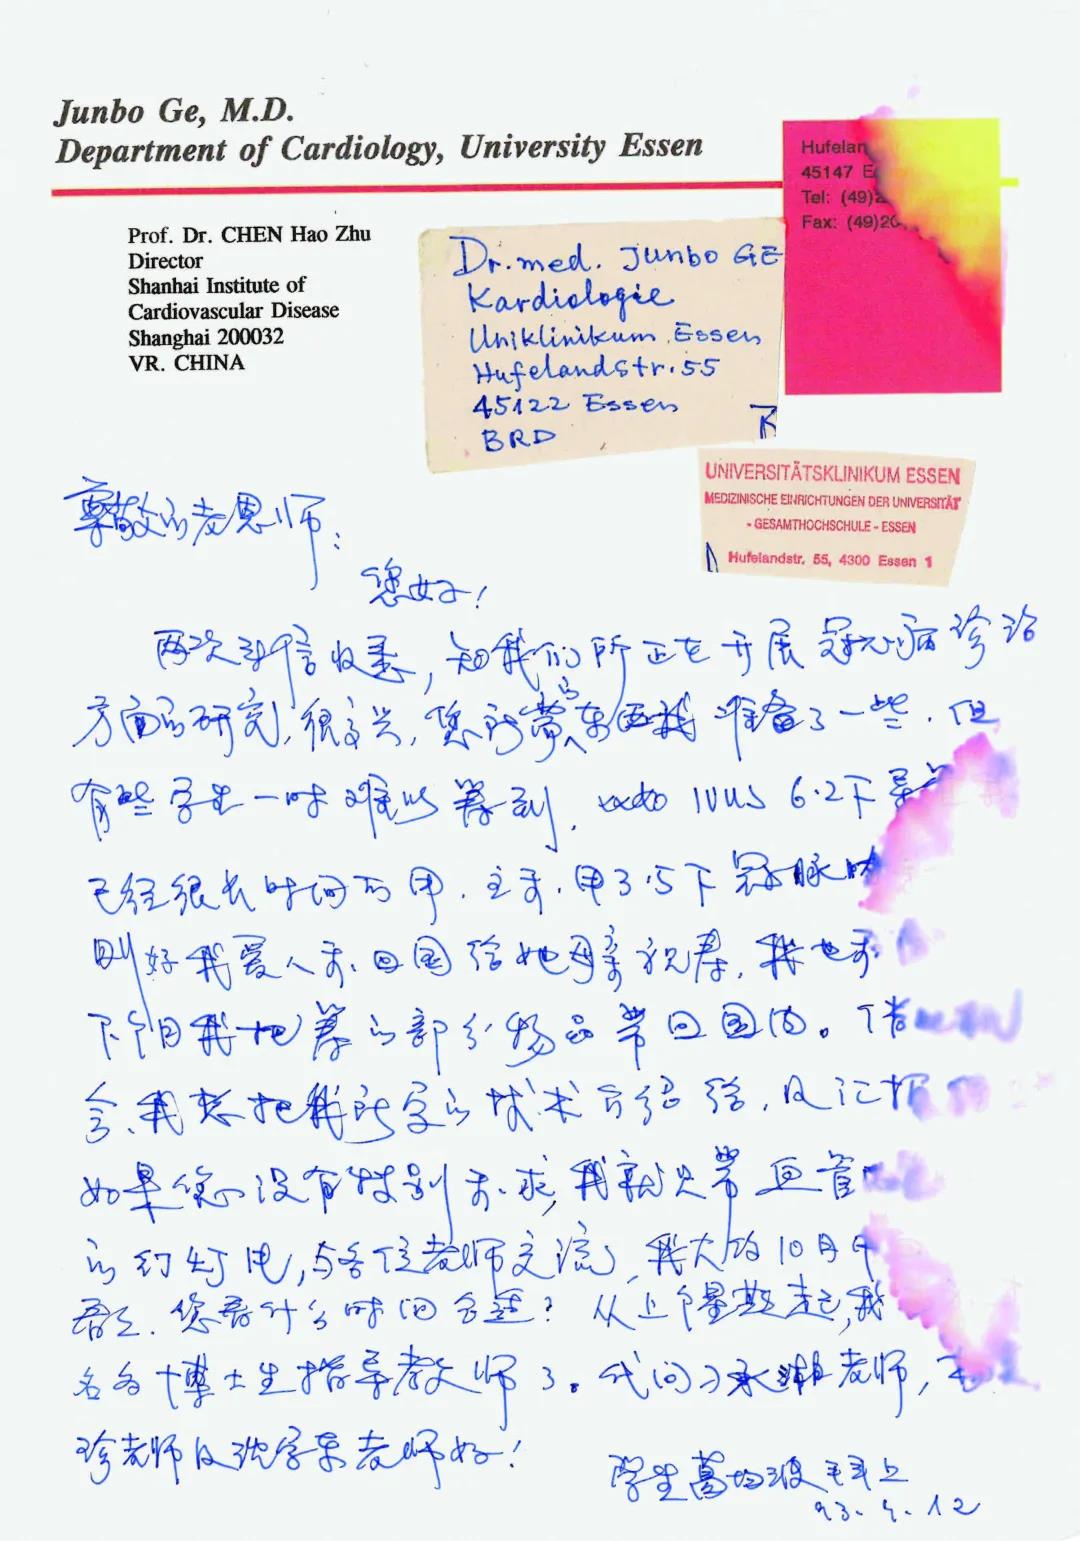 Junbo Ge, M.D.
Department of Cardiology, University Essen
Hufelan
45147 E
Tel: (49)2
Fax: (49)20
Prof. Dr. CHEN Hao Zhu
Director
Shanhai Institute of
Cardiovascular Disease
Shanghai 200032
VR. CHINA
Dr. med. Junbo GE
Kardiologie
Uniklinikum Essen
Hufelandstr. 55
45122 Essen
BRD
UNIVERSITÄTSKLINIKUM ESSEN
MEDIZINISCHE EINRICHTUNGEN DER UNIVERSITÄT
- GESAMTHOCHSCHULE - ESSEN
Hufelandstr. 55, 4300 Essen 1
尊敬的老恩师：
您好！
两次来信收悉，知我们所正在开展冠心病诊治
方面的研究，很高兴，您所需的东西我准备了一些，但
有些学生一时难以筹到，IVUS 6.2F 导
已经很长时间不用，主要用3.5F 冠脉
刚好我爱人要回国给她母亲祝寿，我也
下个月我把筹的部分物品带回国内。借
会，我想把我所学的技术介绍给，及汇报
如果您没有特别要求，我就只带血管
的幻灯片，与各位老师交流，我大约10月中
您看什么时间合适？从上个星期起，我
名博士生指导教师了。代问承灏老师，
珍老师及沈学东老师好！
学生葛均波 上
93. 9. 12